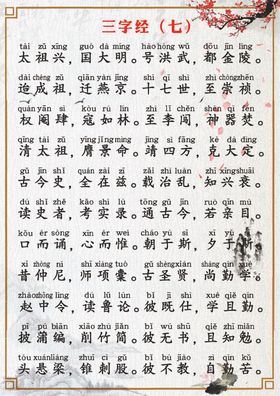 三字经（七）
tài zǔ xīng guó dà míng hào hóng wǔ dōu jīn líng
太祖兴，国大明。号洪武，都金陵。
dài chéng zǔ qiān yàn jīng shí qī shì zhì chóng zhēn
迨成祖，迁燕京。十七世，至崇祯。
quán yān sì kòu rú lín zhì lǐ chuǎng shén qì fén
权阉肆，寇如林。至李闯，神器焚。
qīng tài zǔ yīng jǐng mìng jìng sì fāng kè dà dìng
清太祖，膺景命。靖四方，克大定。
gǔ jīn shǐ quán zài zī zǎi zhì luàn zhī xīng shuāi
古今史，全在兹。载治乱，知兴衰。
dú shǐ zhě kǎo shí lù tōng gǔ jīn ruò qīn mù
读史者，考实录。通古今，若亲目。
kǒu ér sòng xīn ér wéi zhāo yú sī xī yú sī
口而诵，心而惟。朝于斯，夕于斯。
xī zhòng ní shī xiàng tuó gǔ shèng xián shàng qín xué
昔仲尼，师项橐。古圣贤，尚勤学。
zhào zhōng lìng dú lǔ lùn bǐ jì shì xué qiě qín
赵中令，读鲁论。彼既仕，学且勤。
pī pú biān xiāo zhú jiǎn bǐ wú shū qiě zhī miǎn
披蒲编，削竹简。彼无书，且知勉。
tóu xuán liáng zhuī cì gǔ bǐ bú jiào zì qín kǔ
头悬梁，锥刺股。彼不教，自勤苦。